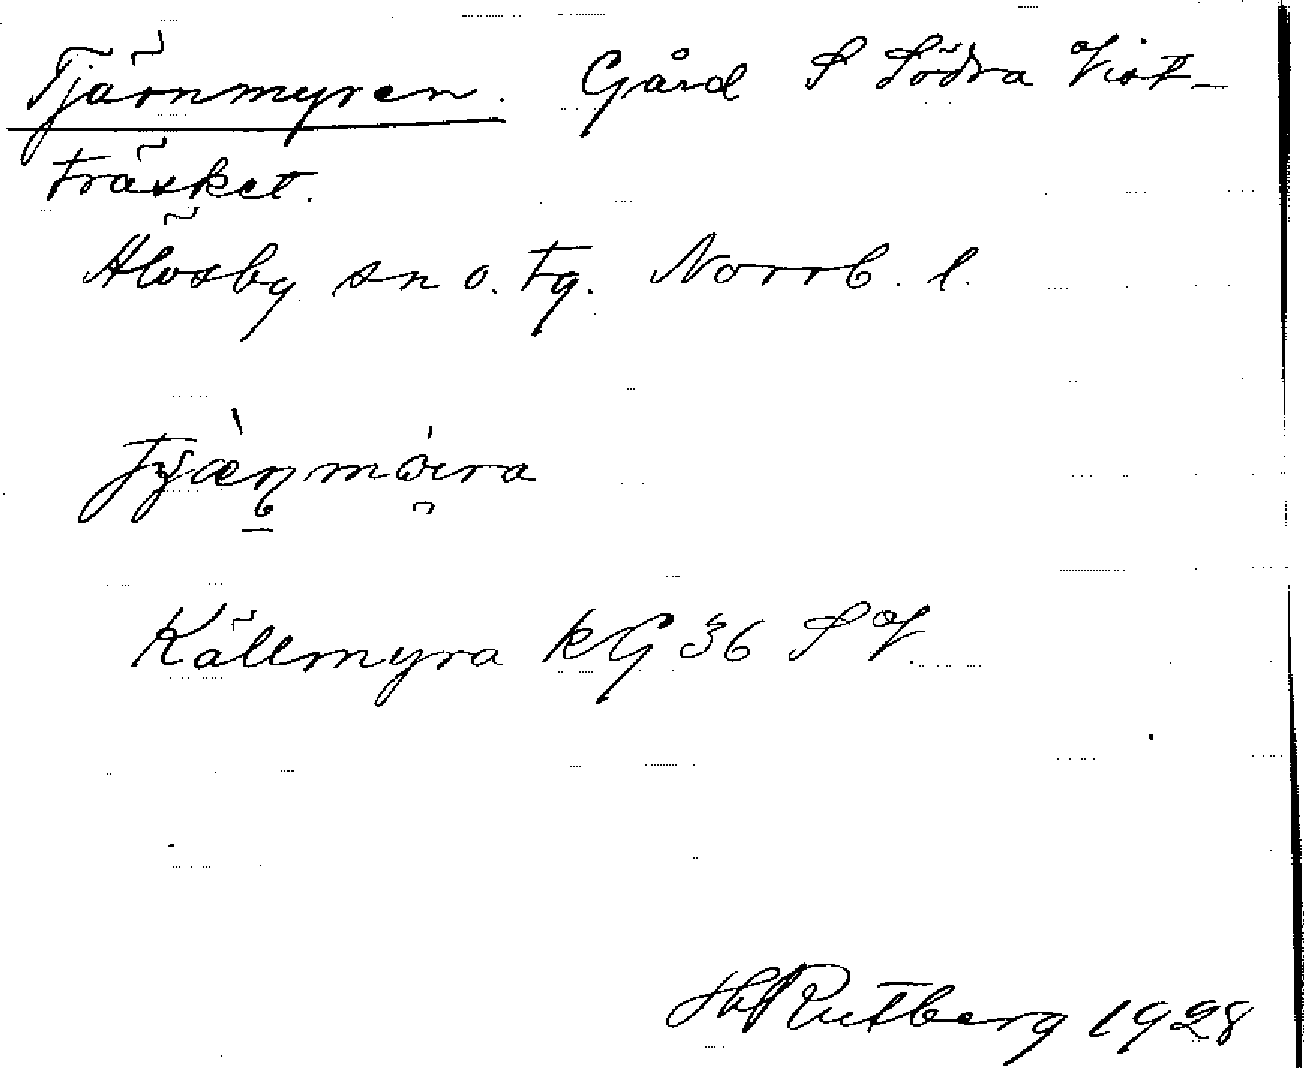 Tjärnmyren. Gård S Södra Vist-
träsket.
Älvsby sn o. tg. Norrb. l.
Källmyra kG 36 SV.
Rutberg 1928